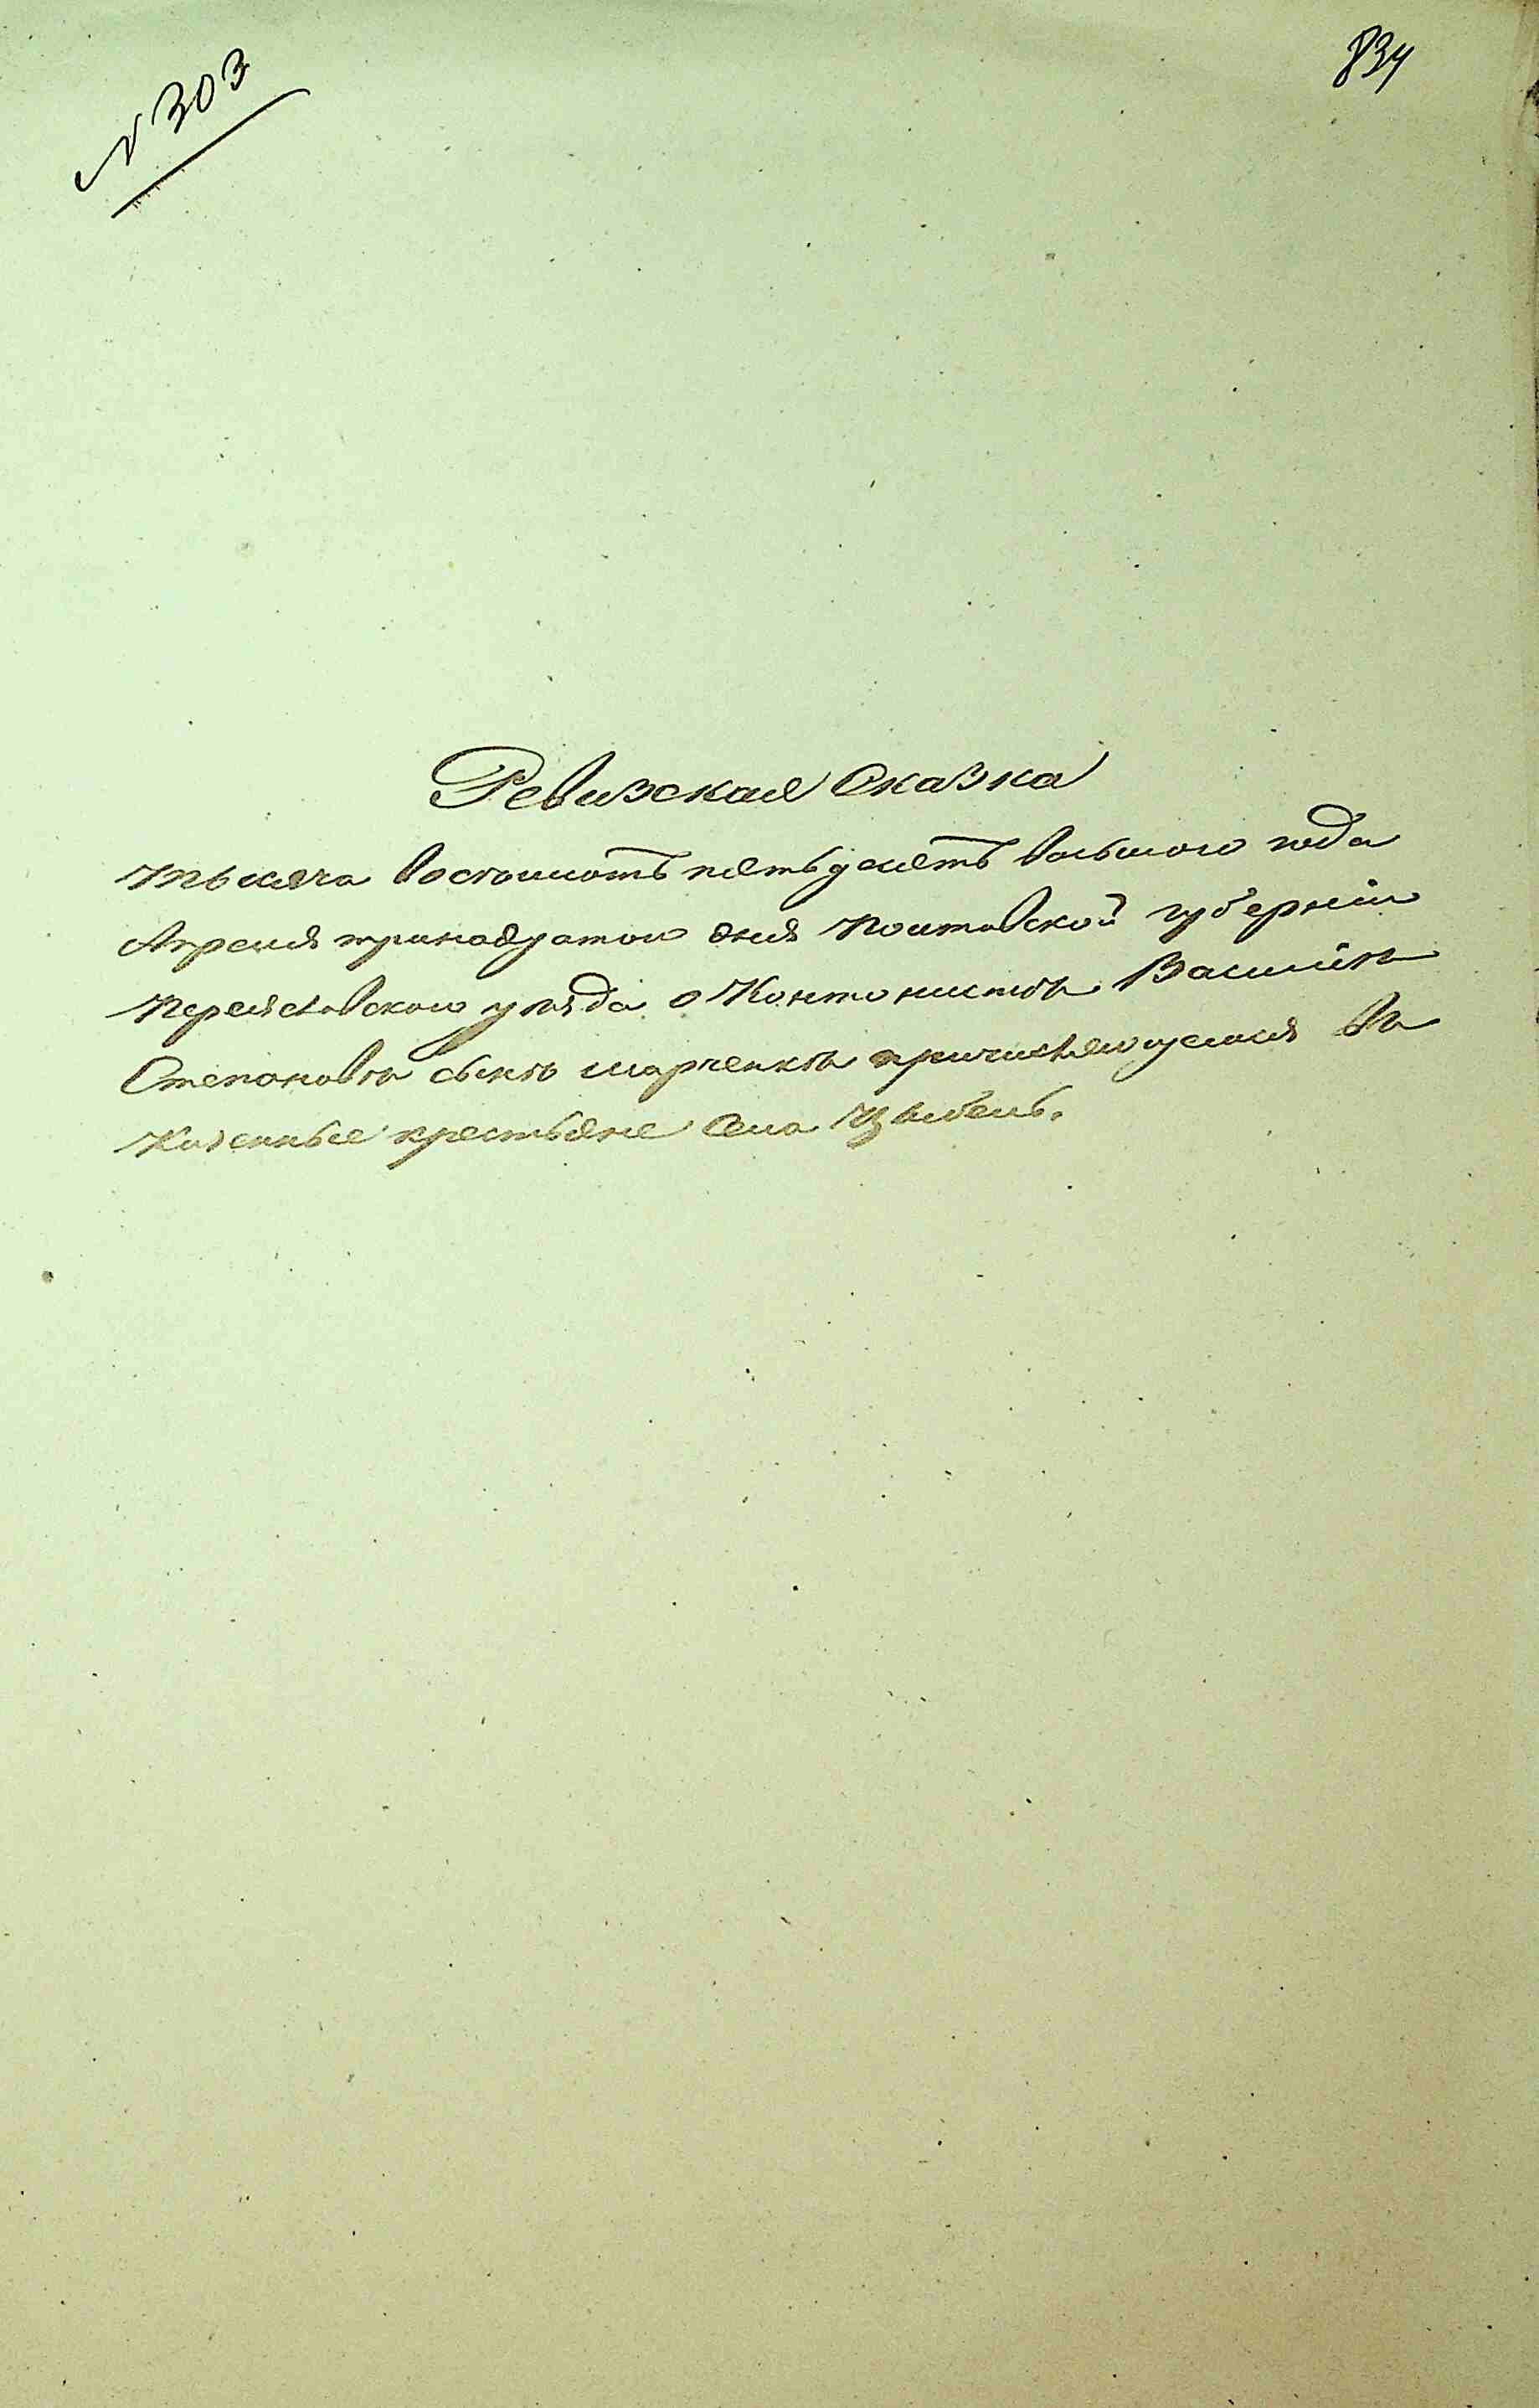 № 303
834
Ревизская Сказка
Тысяча восемьсотъ пятьдесятъ восьмого года
Апреля тринадцатого дня Полтавской губерніи
Переяславского уезда о Кантонисте Василіѣ
Степановѣ сынѣ Марченкѣ причисляющемся въ
Казенные крестьяне Села Цыбель.